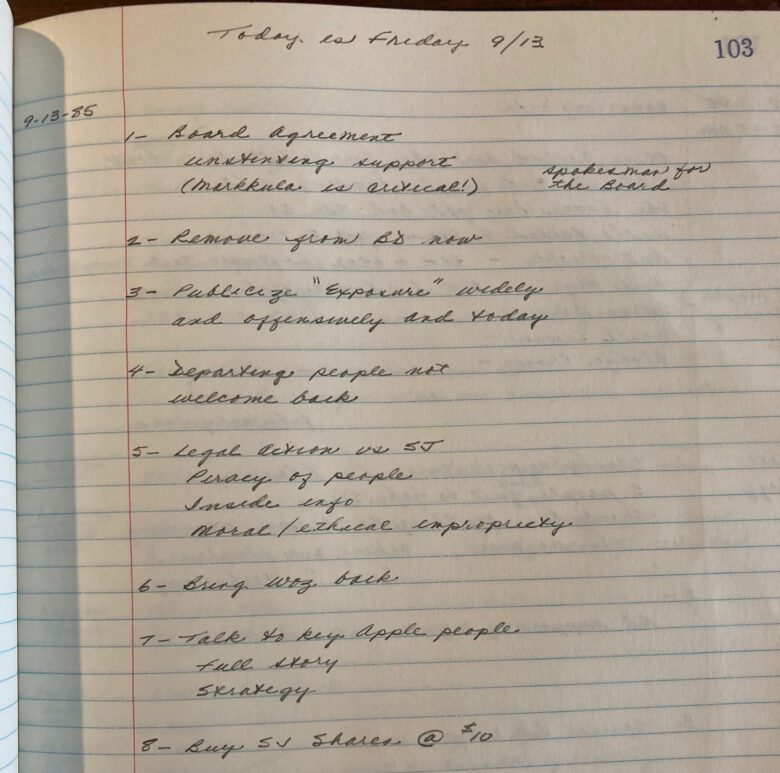 Today is Friday 9/13
103
9-13-85
1- Board Agreement
unstinting support
(Markkula is critical!)
spokesman for
the Board
2- Remove from BD now
3- Publicize "Exposure" widely
and offensively and today
4- Departing people not
welcome back
5- Legal action vs SJ
Piracy of people
Inside info
Moral/ethical impropriety
6- Bring Woz back
7- Talk to key Apple people
Full story
Strategy
8- Buy SJ Shares @ $10